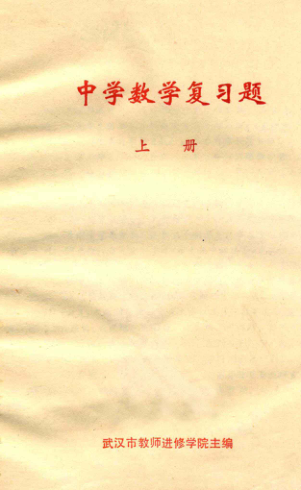 中学数学复习题
上 册
武汉市教师进修学院主编